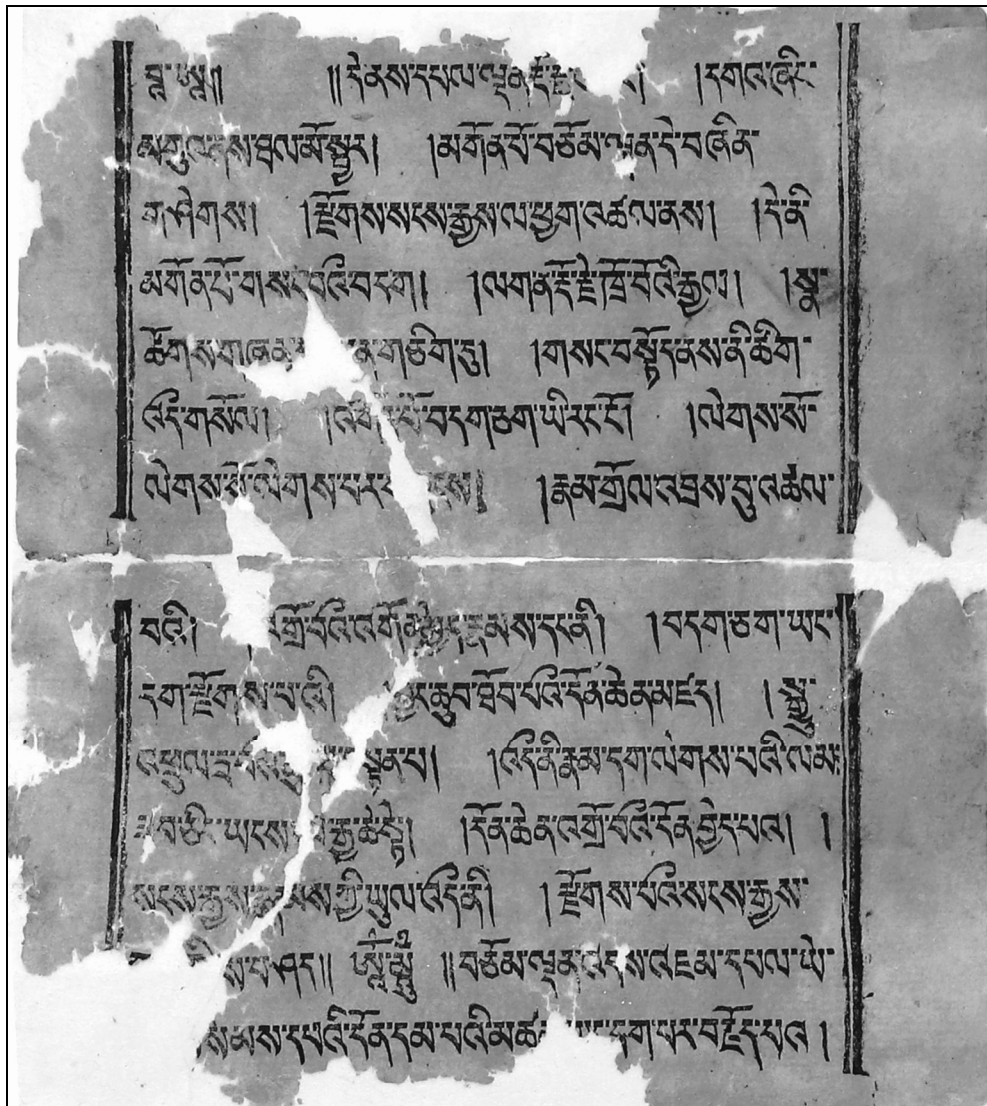 །།དེ་ནས་དཔལ་ལྡན་རྡོ་ །དགའ་ཞིང་
མགུ་ནས་ཐལ་མོ་སྦྱར། །མགོན་པོ་བཅོམ་ལྡན་དེ་བཞིན་
གཤེགས། །རྫོགས་སངས་རྒྱས་ལ་ཕྱག་འཚལ་ནས། །དེ་ནི་
མགོན་པོ་གསང་བའི་བདག །ལག་ན་རྡོ་རྗེ་ཁྲོ་བོའི་རྒྱལ། །སྣ་
ཚོགས་གཞན་ གཅིག་ཏུ། །གསང་བསྟོད་ནས་ནི་ཚིག་
འདི་གསོལ། བདག་ཅག་ཡི་རང་ངོ། །ལེགས་སོ་
ལེགས་སོ་ལེགས་པར་ །རྣམ་གྲོལ་འབྲས་བུ་འཚལ་
བའི། འགྲོ་བའི་འགོན་མྱེད་རྣམས་དང་ནི། །བདག་ཅག་ཡང་
དག་རྫོགས་པའི། བྱང་ཆུབ་ཐོབ་པའི་དོན་ཆེན་མཛད། །སྒྱུ་
འཕྲུལ་དྲ་བས་ སྟན་པ། །འདི་ནི་རྣམ་དག་ལེགས་པའི་ལམ།
ཟབ་ཅིང་ཡངས་ རྒྱ་ཆེ་སྟེ། །དོན་ཆེན་འགྲོ་བའི་དོན་བྱེད་པའ། །
སངས་རྒྱས་རྣམས་ཀྱི་ཡུལ་འདི་ནི། །རྫོགས་པའི་སངས་རྒྱས་
ས་བཤད།། །།བཅོམ་ལྡན་འདས་འཇམ་དཔལ་ཡེ་
སེམས་དཔའི་དོན་དམ་པའི་མཚན་ དག་པར་བརྗོད་པའ །